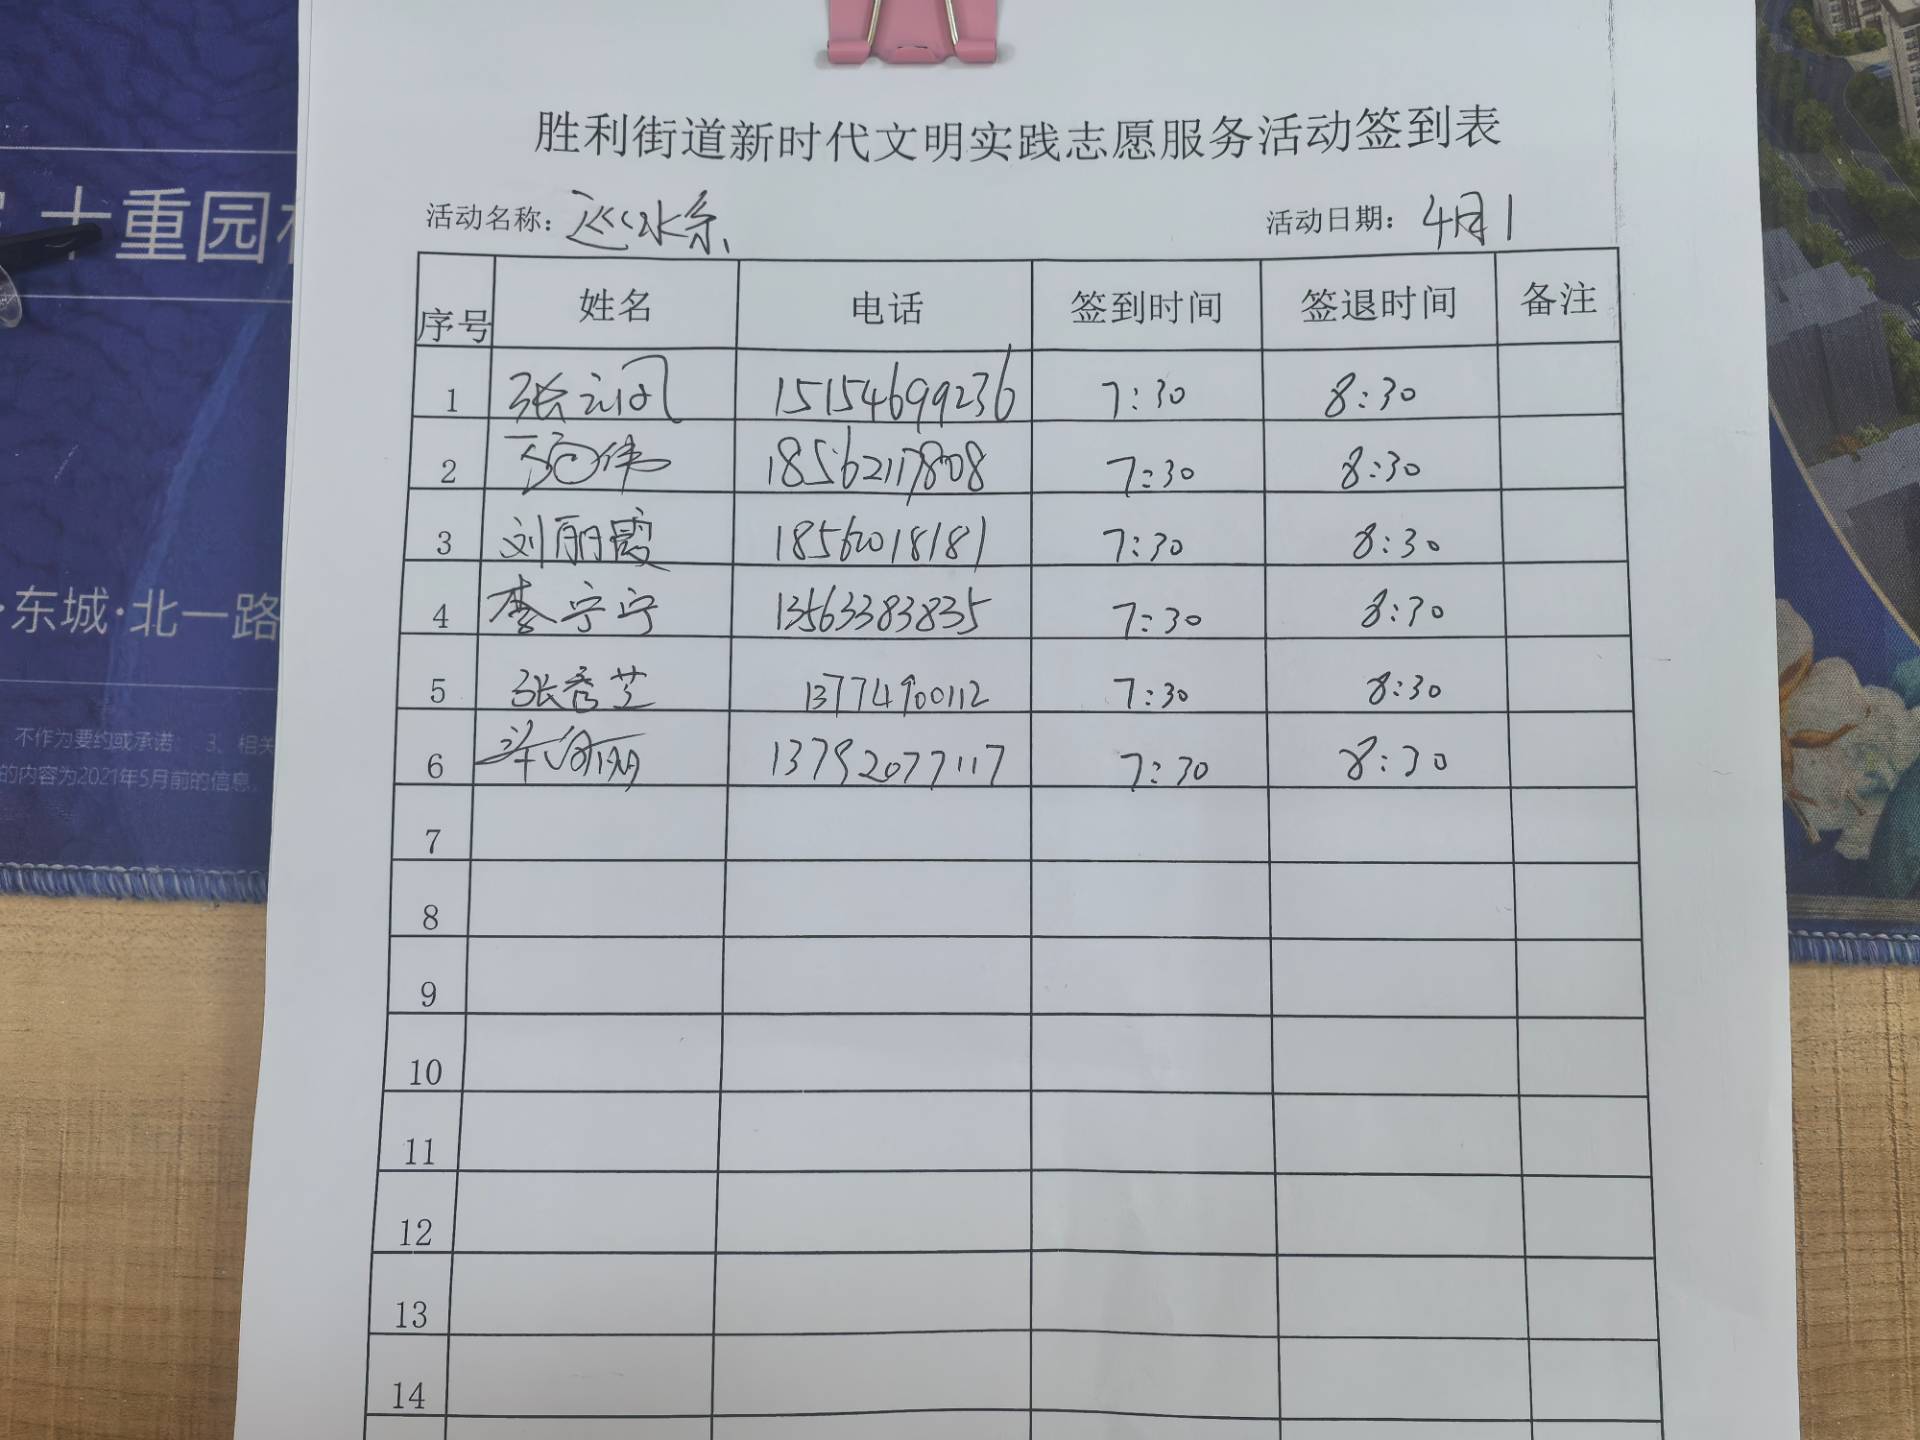 十重园
·东城·北一路
不作为要约或承诺; 3、相关
的内容为2021年5月前的信息。
胜利街道新时代文明实践志愿服务活动签到表
活动名称: 巡水系 活动日期: 4月1
序号 姓名 电话 签到时间 签退时间 备注
1 张云凤 15154699236 7:30 8:30
2 伟 18562117808 7:30 8:30
3 刘丽霞 18562018181 7:30 8:30
4 李宁宁 13563383835 7:30 8:30
5 张秀芝 13774900112 7:30 8:30
6 13792077117 7:30 8:30
7
8
9
10
11
12
13
14